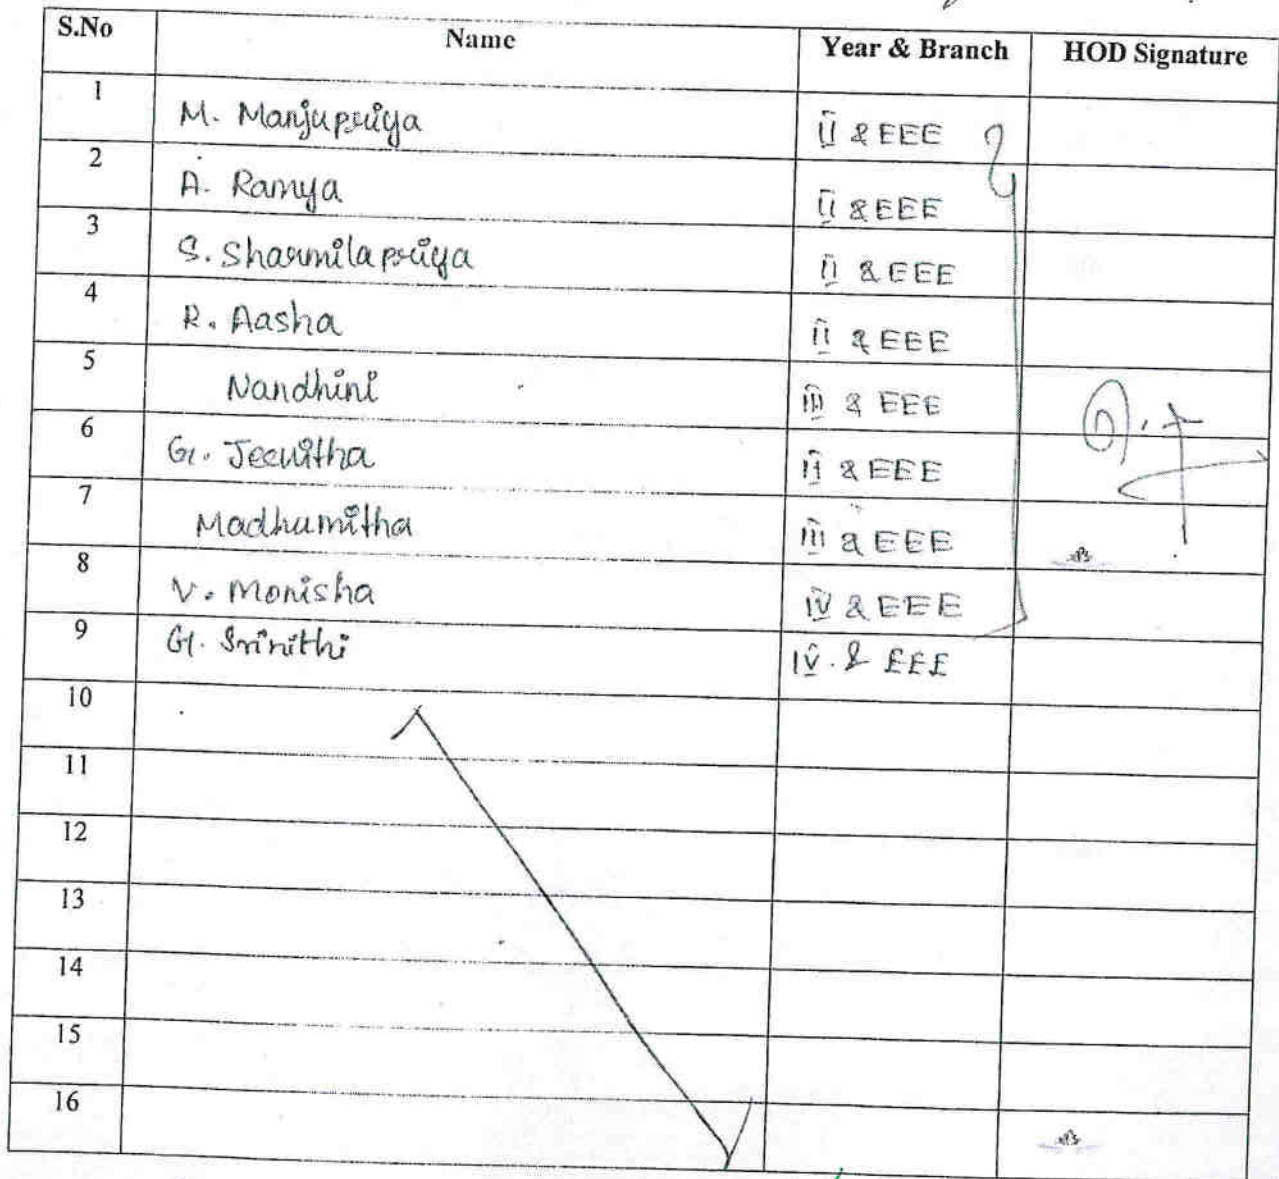 S.No Name Year & Branch HOD Signature
1 M. Manjupriya II & EEE
2 A. Ramya II & EEE
3 S. Sharmilapriya II & EEE
4 R. Aasha II & EEE
5 Nandhini III & EEE
6 G. Jeevitha II & EEE
7 Madhumitha III & EEE
8 V. Monisha IV & EEE
9 G. Srinithi IV & EEE
10
11
12
13
14
15
16